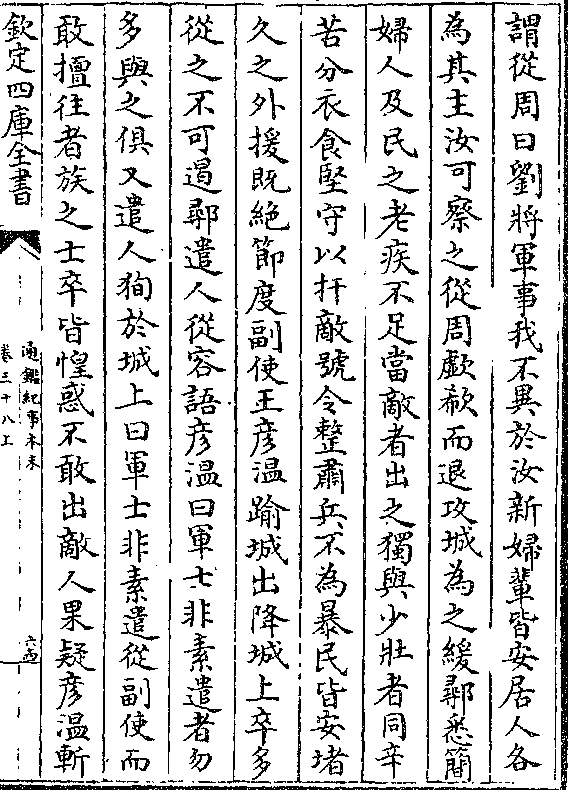 謂從周曰劉將軍事我不異於汝新婦輩皆安居人各
為其主汝可察之從周歔欷而退攻城為之緩鄩悉簡
婦人及民之老疾不足當敵者出之獨與少壯者同辛
苦分衣食堅守以扞敵號令整肅兵不為暴民皆安堵
久之外援既絶節度副使王彦温踰城出降城上卒多
從之不可遏鄩遣人從容語彦温曰軍士非素遣者勿
多與之俱又遣人狥於城上曰軍士非素遣從副使而
敢擅往者族之士卒皆惶惑不敢出敵人果疑彦温斬
欽定四庫全書
通鑑紀事本末
卷三十八上
六四